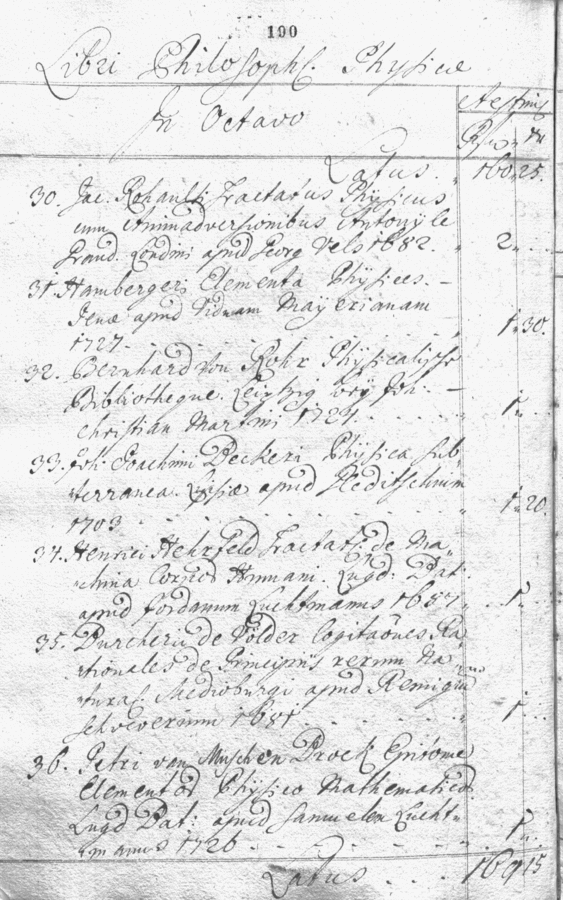 190
Libri Philosoph. Physicæ
In Octavo
Aestim
Latus. 160 25.
30. Jac. Rohaulti Tractatus Physicus
cum Animadversionibus Antony le
Grand. Londini apud Georg Wels 1682. 2
31. Hambergeri Elementa Physices.
Jenæ apud Viduam Mayerianam
1727. 1 30.
32. Bernhard von Rohr Physicalische
Bibliotheque. Leipzig bey Joh.
Christian Martini 1724 1
33. Joh. Joachimi Beckeri Physica Sub
terranea. Lipsiæ apud Gleditschium
1703 1 20.
34. Henrici Tractat: de Ma
china Corporis Humani. Lugd: Bat:
apud Jordanum Luchtmanns 1687 1
35. Burcheri de Volder Cogitaōnes Ra
tionales de Principiis rerum Na
tural Medioburgi apud Remigium
Schreverum 1681 1
36. Petri van Musschen Brock Epitome
Elementor Physico Mathematicor.
Lugd Bat: apud Samuelem Lucht
manns 1726 1
Latus 169 15